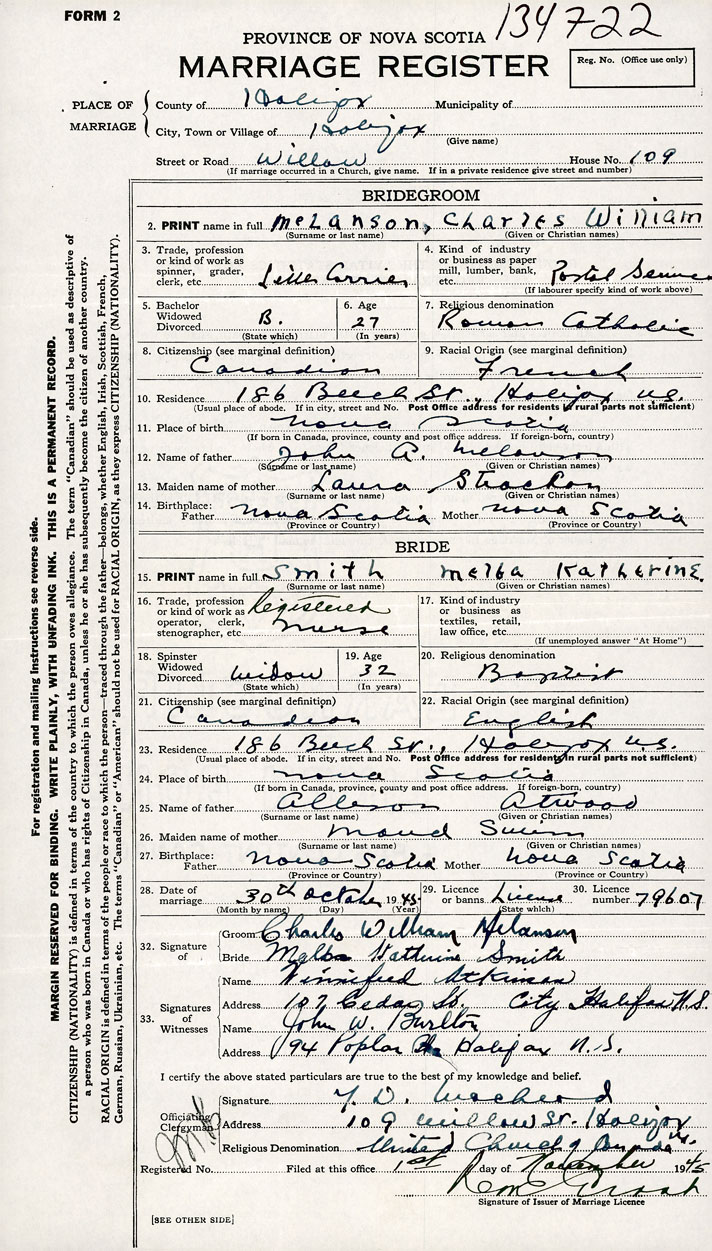 FORM 2
134722
PROVINCE OF NOVA SCOTIA
MARRIAGE REGISTER
Reg. No. (Office use only)
PLACE OF MARRIAGE
County of Halifax Municipality of
City, Town or Village of Halifax
(Give name)
Street or Road Willow House No. 109
(If marriage occurred in a Church, give name. If in a private residence give street and number)
BRIDEGROOM
2. PRINT name in full Melanson, Charles William
(Surname or last name) (Given or Christian names)
3. Trade, profession or kind of work as spinner, grader, clerk, etc. Letter Carrier
4. Kind of industry or business as paper mill, lumber, bank, etc. Postal Service
(If labourer specify kind of work above)
5. Bachelor Widowed Divorced B.
(State which)
6. Age 27
(In years)
7. Religious denomination Roman Catholic
8. Citizenship (see marginal definition) Canadian
9. Racial Origin (see marginal definition) French
10. Residence 186 Beech St., Halifax N.S.
(Usual place of abode. If in city, street and No. Post Office address for residents in rural parts not sufficient)
11. Place of birth Nova Scotia
(If born in Canada, province, county and post office address. If foreign-born, country)
12. Name of father John A. Melanson
(Surname or last name) (Given or Christian names)
13. Maiden name of mother Laura
(Surname or last name) (Given or Christian names)
14. Birthplace: Father Nova Scotia Mother Nova Scotia
(Province or Country) (Province or Country)
BRIDE
15. PRINT name in full Smith Melba Katherine
(Surname or last name) (Given or Christian names)
16. Trade, profession or kind of work as operator, clerk, stenographer, etc. Registered Nurse
17. Kind of industry or business as textiles, retail, law office, etc.
(If unemployed answer "At Home")
18. Spinster Widowed Divorced Widow
(State which)
19. Age 32
(In years)
20. Religious denomination Baptist
21. Citizenship (see marginal definition) Canadian
22. Racial Origin (see marginal definition) English
23. Residence 186 Beech St., Halifax N.S.
(Usual place of abode. If in city, street and No. Post Office address for residents in rural parts not sufficient)
24. Place of birth Nova Scotia
(If born in Canada, province, county and post office address. If foreign-born, country)
25. Name of father Atwood
(Surname or last name) (Given or Christian names)
26. Maiden name of mother Maud Swim
(Surname or last name) (Given or Christian names)
27. Birthplace: Father Nova Scotia Mother Nova Scotia
(Province or Country) (Province or Country)
28. Date of marriage 30th October 1945
(Month by name) (Day) (Year)
29. Licence or banns License
(State which)
30. Licence number 79607
32. Signature of
Groom Charles William Melanson
Bride Melba Katherine Smith
33. Signatures of Witnesses
Name Winnifred Atkinson
Address 107 Cedar St. City Halifax N.S.
Name John W. Burlton
Address 94 Poplar Halifax N.S.
I certify the above stated particulars are true to the best of my knowledge and belief.
Officiating Clergyman
Signature
Address 109 Willow St. Halifax
Religious Denomination United Church of Canada
Registered No. Filed at this office 1st day of November 1945
Signature of Issuer of Marriage Licence
[SEE OTHER SIDE]
For registration and mailing instructions see reverse side.
MARGIN RESERVED FOR BINDING. WRITE PLAINLY, WITH UNFADING INK. THIS IS A PERMANENT RECORD.
CITIZENSHIP (NATIONALITY) is defined in terms of the country to which the person owes allegiance. The term "Canadian" should be used as descriptive of
a person who was born in Canada or who has rights of Citizenship in Canada, unless he or she has subsequently become the citizen of another country.
RACIAL ORIGIN is defined in terms of the people or race to which the person—traced through the father—belongs, whether English, Irish, Scottish, French,
German, Russian, Ukrainian, etc. The terms "Canadian" or "American" should not be used for RACIAL ORIGIN, as they express CITIZENSHIP (NATIONALITY).